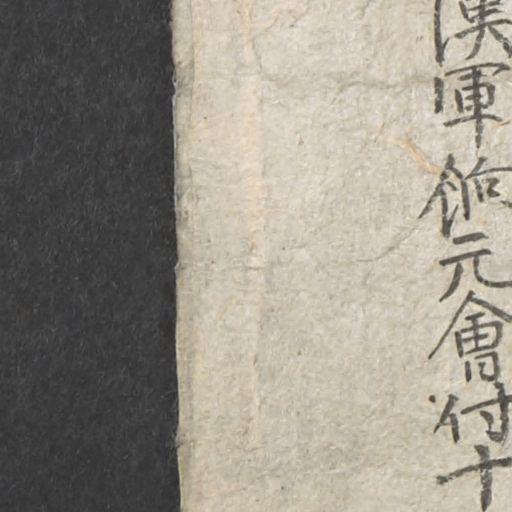 漢軍餉元會付十